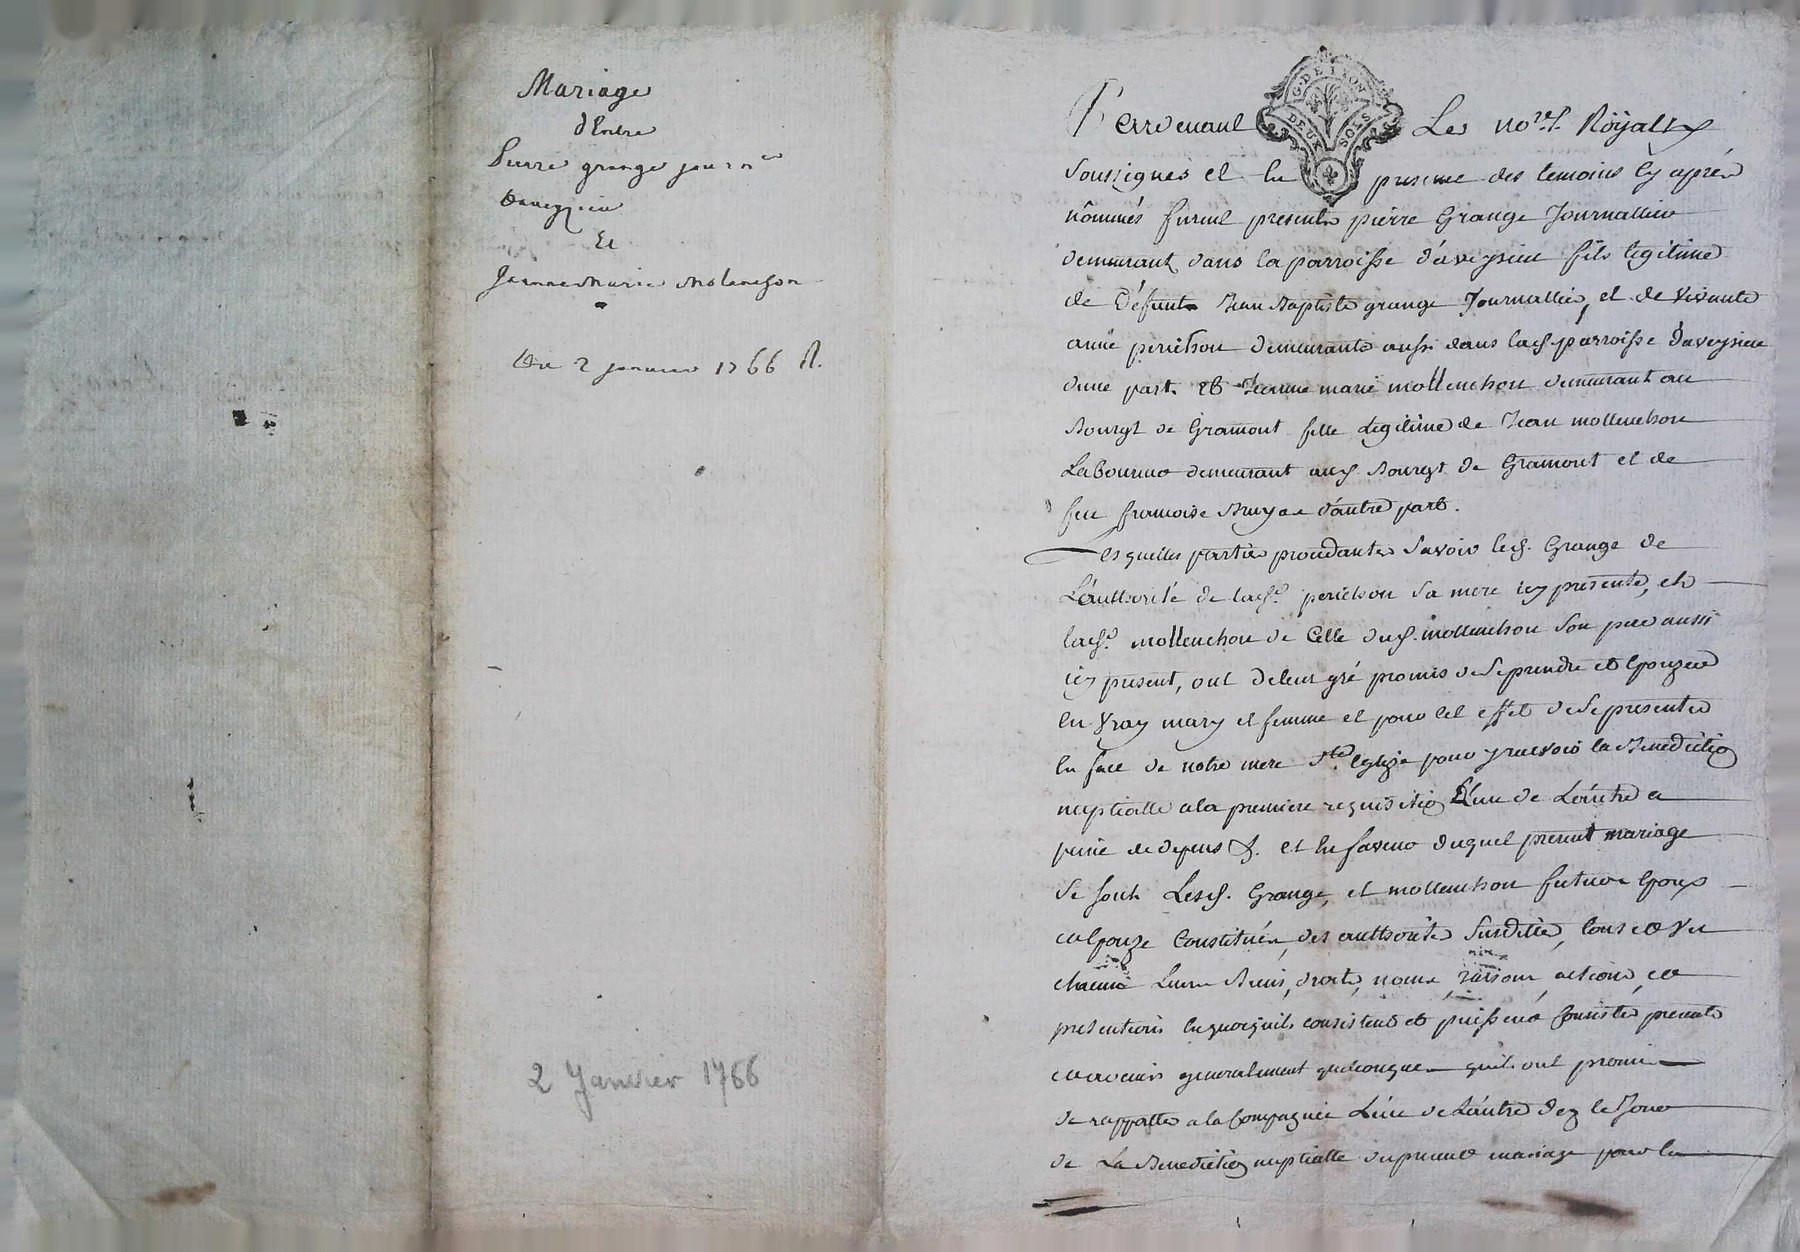 Mariage
d'Entre
Pierre grange journ.er
Daveyzieu
Et
Jeanne Marie Molenchon
Du 2 janvier 1766
2 Janvier 1766
G. DE LYON
DEUX SOLS
Pardevant Les no.res Roÿaux
soussignés et En presence des temoins Cy aprés
nômmés furent presents pierre Grange Journallier
demeurant dans la parroisse d'aveysieu fils legitime
de Défunt Jean Baptiste grange Journallier, et de vivante
anne perichon demeurante aussi dans lad. parroisse d'aveysieu
d'une part. Et Jeanne marie mollenchon demeurant au
Bourgt de Gramont fille Legitime de Jean mollenchon
Laboureur demeurant aud. Bourgt de Gramont et de
feu francoise d'autre part.
Les quelles parties procedantes savoir led. Grange de
L'authorité de lad.e perichon sa mere icy presente, et
lad.e mollenchon de Celle dud. mollenchon son pere aussi
icy present, ont de leur gré promis de se prendre et Epouzer
En vray mary et femme et pour cet effet de se presenter
En face de notre mere s.te eglize pour y recevoir la Benedictio
nuptialle a la premiere requisitio L'une de L'autre a
peine de depens &. et En faveur duquel present mariage
se sont Lesd. Grange, et mollenchon futurs Epoux
et Epouze Constitués, des authorités susdittes, tous et Un
chacuns Leurs Biens, droits, noms, raisons, actions, et
pretentions En quoi qu'ils consistent et puissent Consister presents
et avenirs generalement quelconques qu'ils ont promis
de rapporter a la Compagnie L'une de L'autre dez le Jour
de La Benedictio nuptialle du present mariage pour En